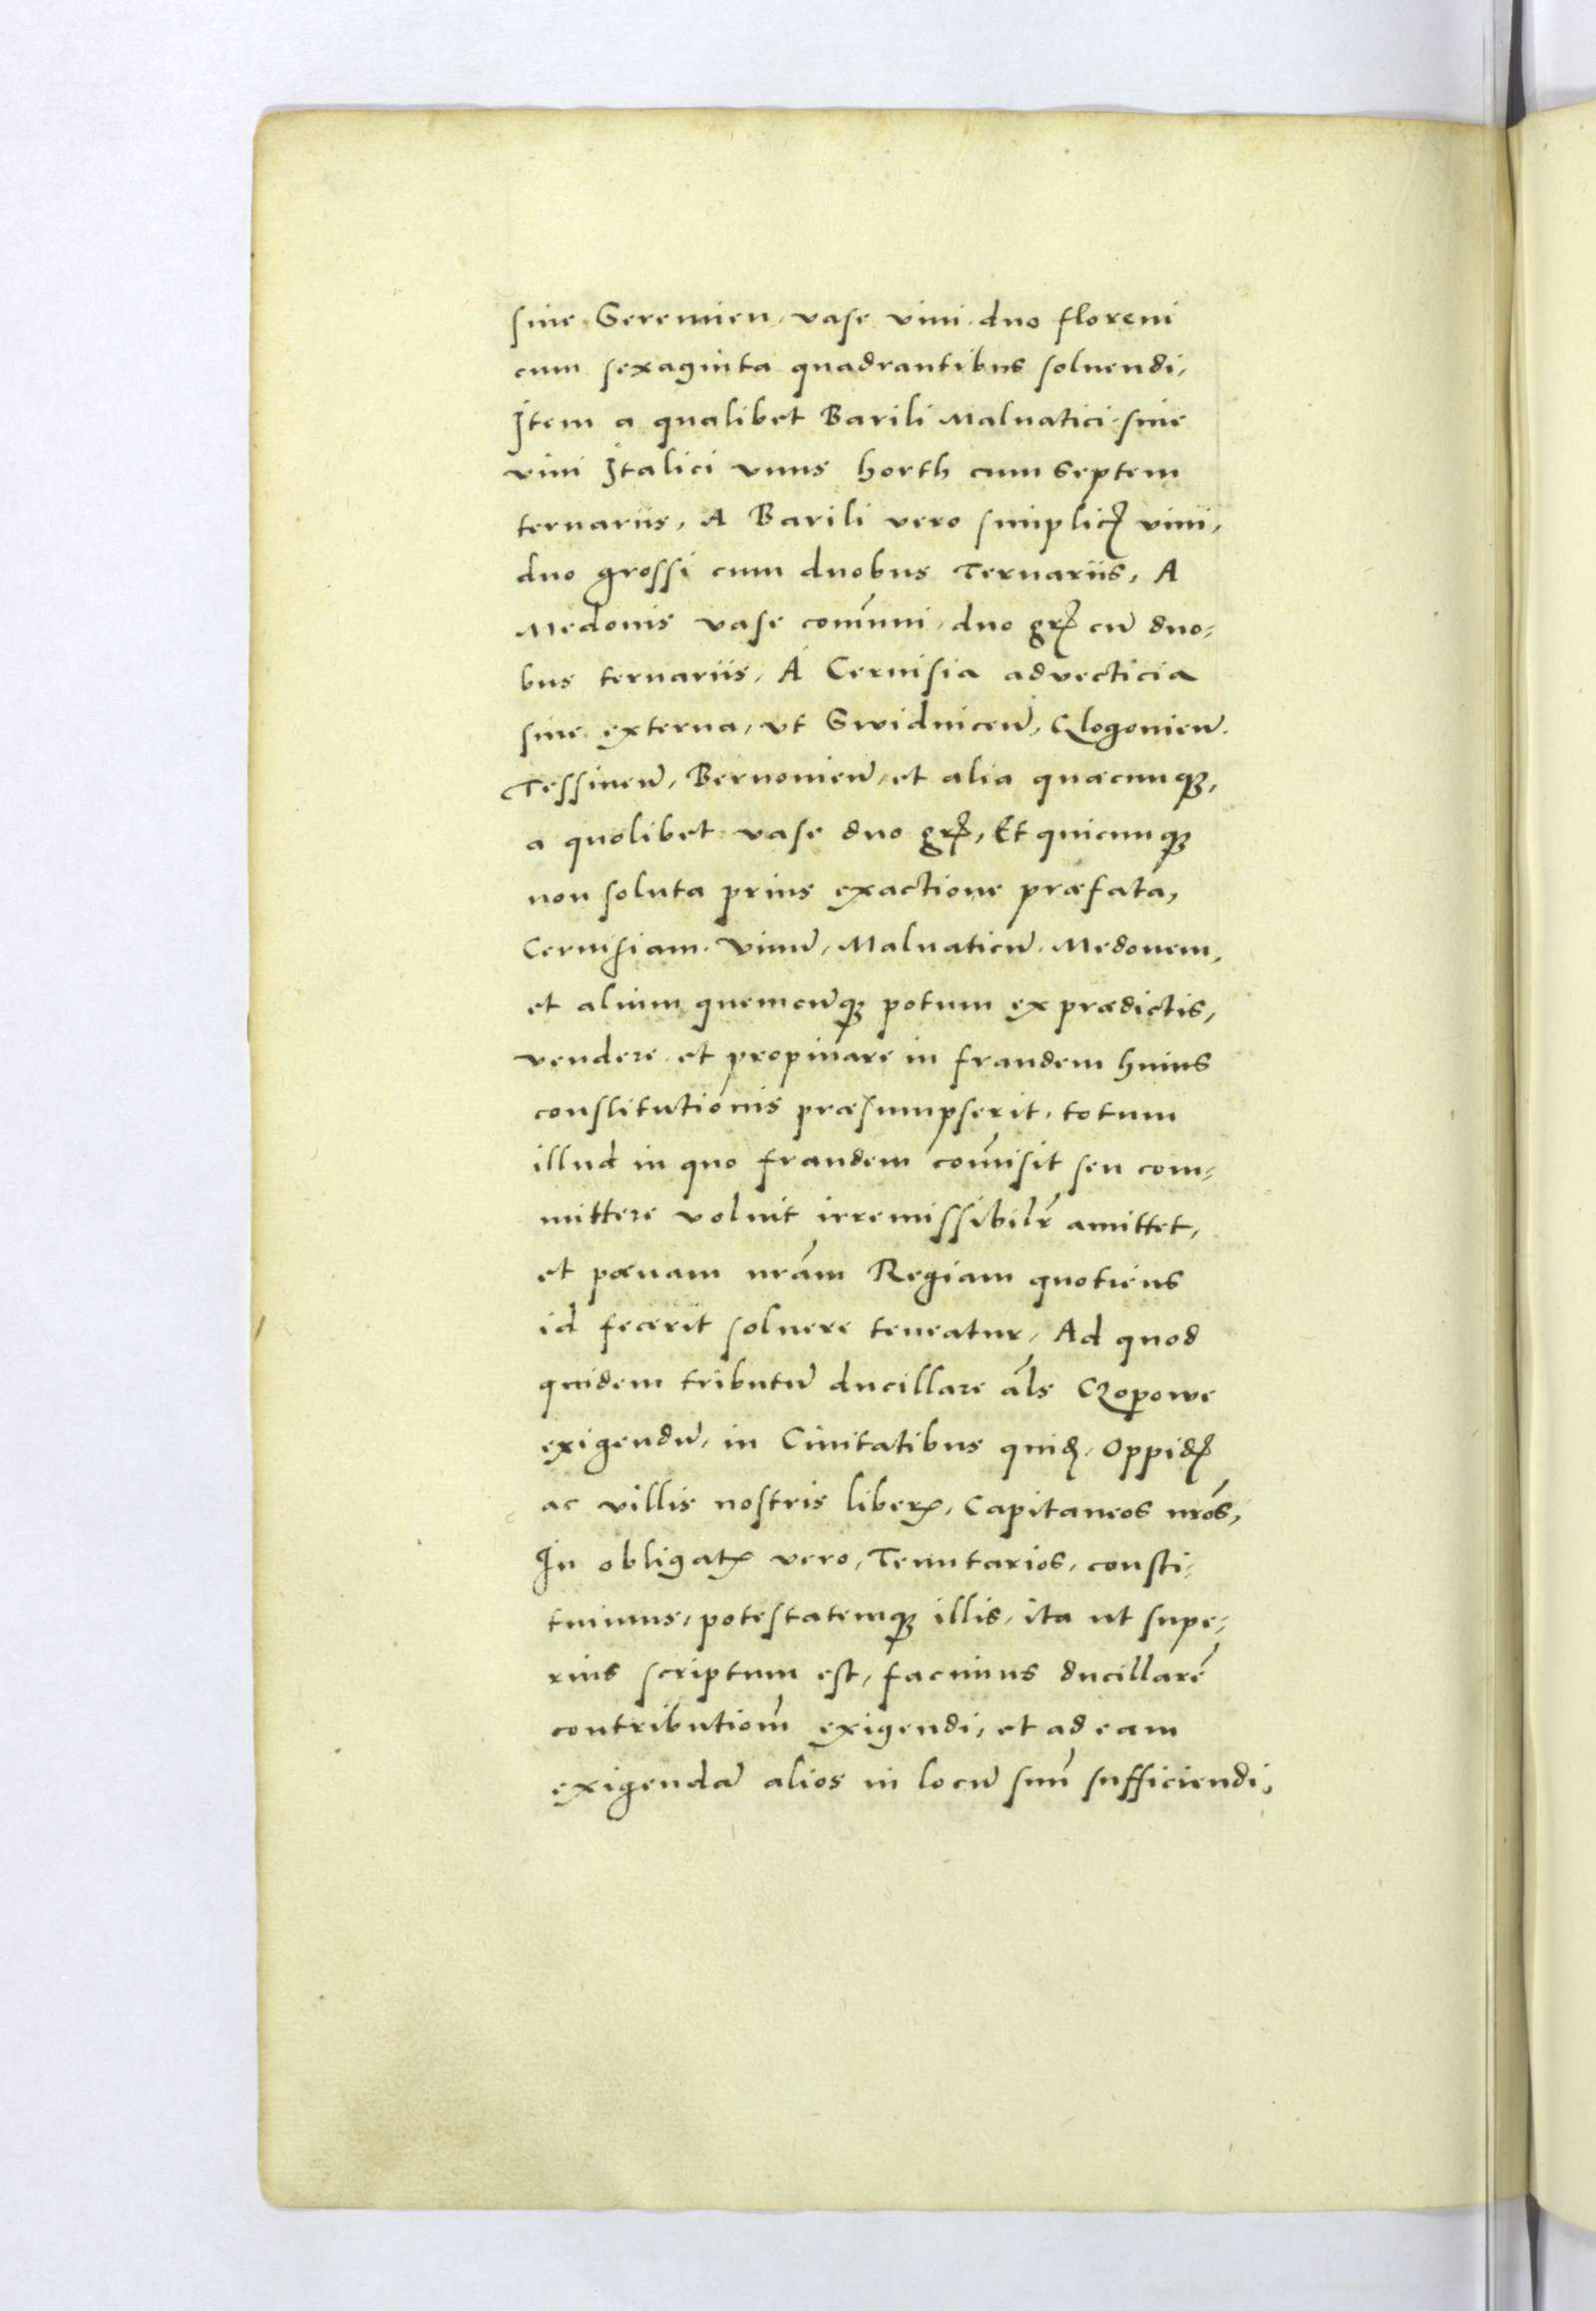 siue Seremien, vase vini duo floreni
cum sexaginta quadrantibus soluendi,
Item a qualibet Barili Maluatici siue
vini Italici vnus horth cum Septem
ternariis, A Barili vero simplicꝭ vini,
duo grossi cum duobus Ternariis, A
Medonis vase com̄uni, duo grꝭ cū duo-
bus ternariis, A Ceruisia advecticia
siue externa, vt Swidniceñ, Glogonieñ.
Tessineñ, Bernonieñ, et alia quæcunqꝫ,
a quolibet vase duo grꝭ, Et quicunqꝫ
non soluta prius exactione præfata,
Ceruisiam. Vinū, Maluaticū. Medonem,
et alium quemcūqꝫ potum ex prædictis,
vendere et propinare in fraudem huius
constitutionis præsumpserit, totum
illud in quo fraudem com̄isit seu com-
mittere voluit irremissibilr̄ amittet,
et pœnam nr̄am Regiam quotiens
id fecerit soluere teneatur, Ad quod
quidem tributū ducillare al̄s Czopowe
exigendū, in Ciuitatibus quidꝫ, Oppidꝭ
ac villis nostris liberꝭ, Capitaneos nr̄os,
In obligatꝭ vero, Tenutarios, consti-
tuimus, potestatemqꝫ illis, ita ut supe-
rius scriptum est, facimus ducillarē
contributiōm exigendi, et ad eam
exigendā alios in locū suū sufficiendi,